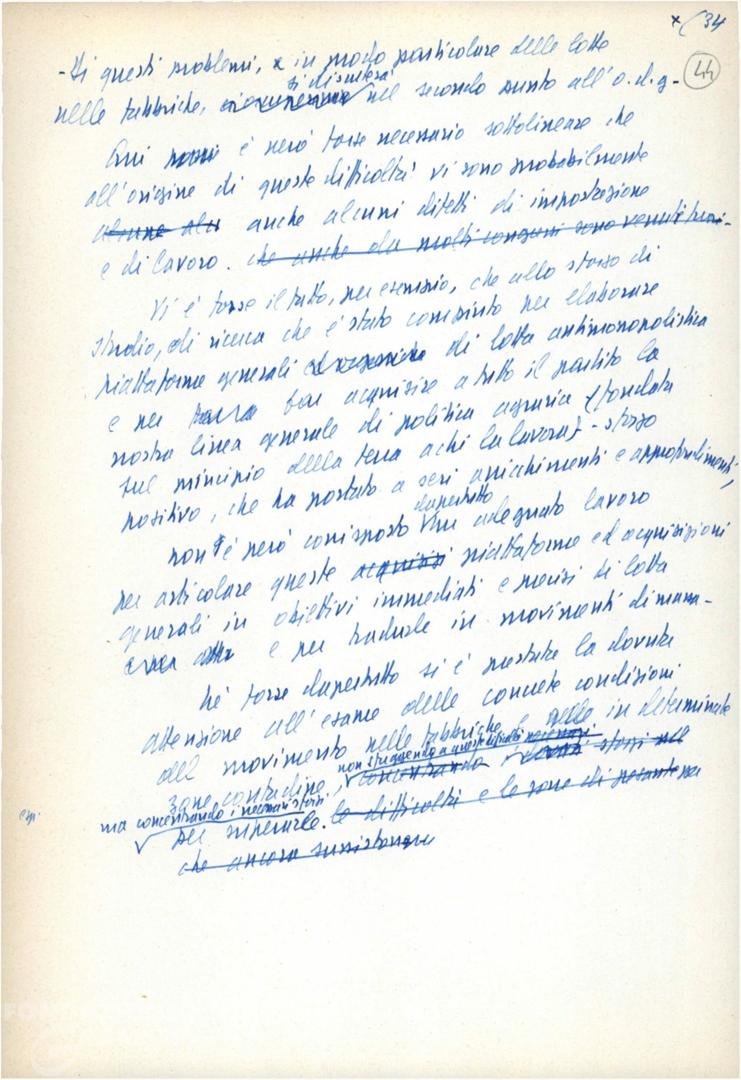 x (34
44
- Di questi problemi, e in modo particolare delle lotte
si discuterà
nelle fabbriche, nel secondo punto all'o.d.g-
Qui è però forse necessario sottolineare che
all'origine di queste difficoltà vi sono probabilmente
alcune alu anche alcuni difetti di impostazione
e di lavoro. che anche da molti compagni sono venuti fuori-
Vi è forse il fatto, per esempio, che allo sforzo di
studio, di ricerca che è stato compiuto per elaborare
piattaforme generali di lotta antimonopolistica
e per fare acquisire a tutto il partito la
nostra linea generale di politica agraria (fondata
sul principio della terra a chi la lavora) - sforzo
positivo, che ha portato a seri arricchimenti e approfondimenti,
dapertutto
non è però corrisposto un adeguato lavoro
per articolare queste acquisizi piattaforme ed acquisizioni
generali in obiettivi immediati e precisi di lotta
e per tradurle in movimenti di massa-
Né forse dapertutto si è prestata la dovuta
attenzione all'esame delle concrete condizioni
del movimento nelle fabbriche e nelle in determinate
non sfuggendo a queste difficoltà necessari
zone contadine, concentrando i dovuti sforzi nel
ma concentrando i necessari sforzi
per superarle. le difficoltà e le zone di pesantezza
che ancora sussistono